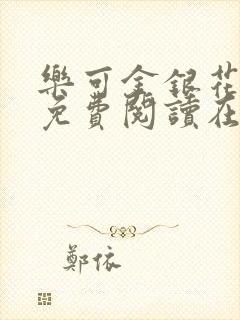 樂可金銀花
免費閱讀在
鄭依